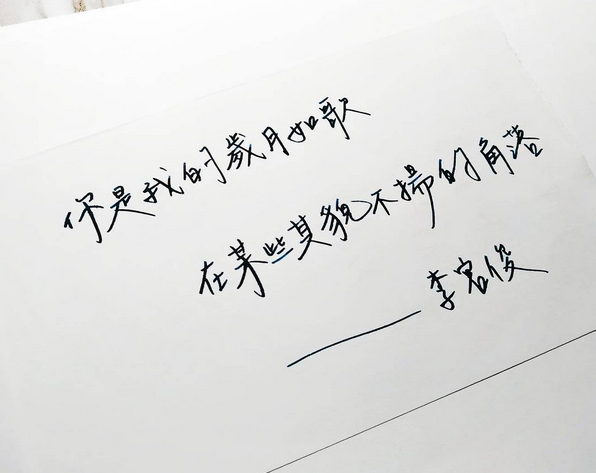 你是我的歲月如歌
在某些其貌不揚的角落
——李宏俊